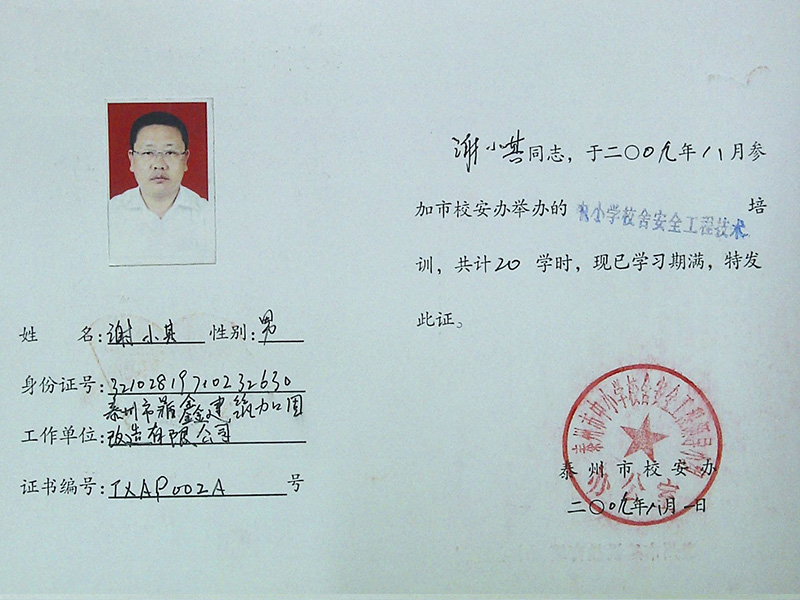 姓　名：谢小其　性别：男
身份证号：321028197102232630
泰州市 鑫建筑加固
工作单位：改造有限公司
证书编号：TXAP002A 号
谢小其同志，于二〇〇九年八月参
加市校安办举办的 中小学校舍安全工程技术 培
训，共计20 学时，现已学习期满，特发
此证。
泰州市中小学校舍安全工程领导小组
办公室
泰州市校安办
二〇〇九年八月一日